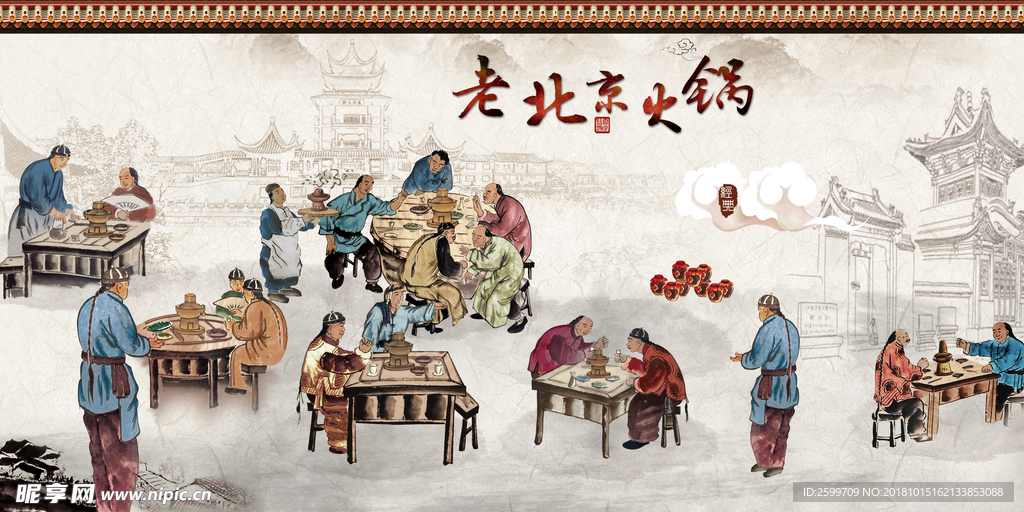 老北京火锅
經典
昵享网 www.nipic.cn
ID:2599709 NO:20181015162133853088